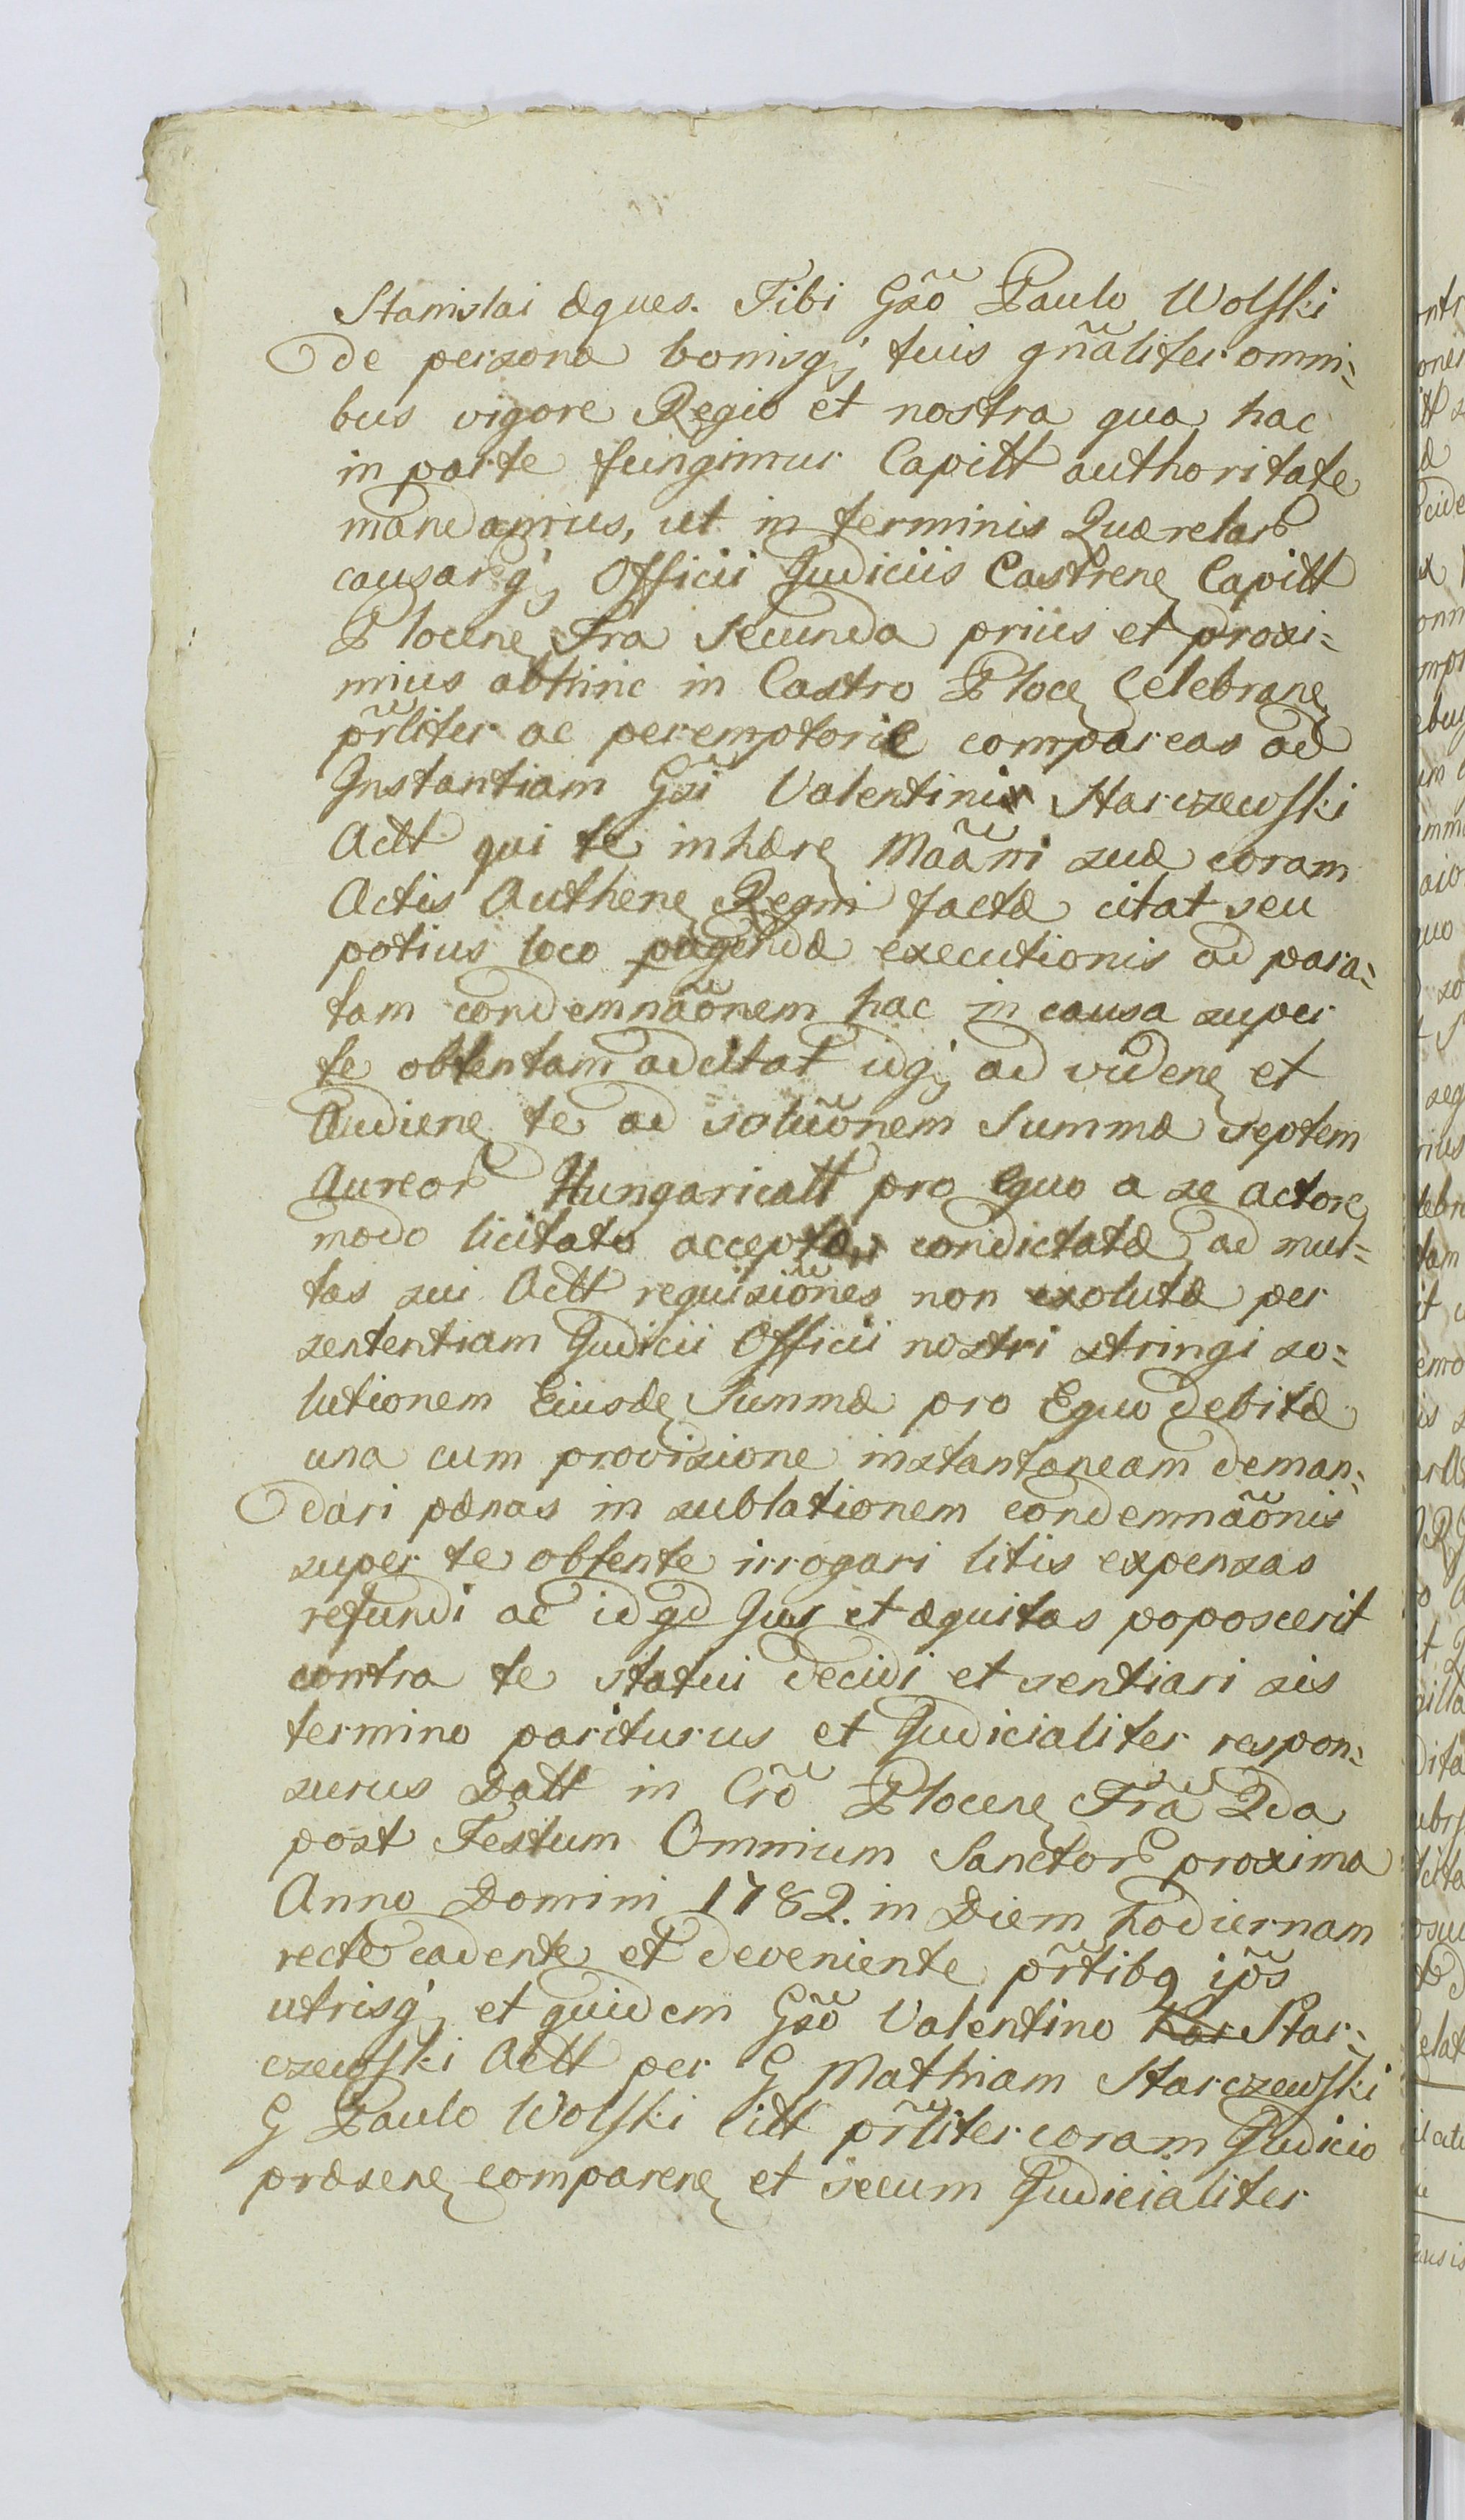 Stanislai æques. Tibi Gsõ Paulo Wolski
de persona bonisq; tuis gñaliter omni=
bus vigore Regio et nostra qua hac
in parte fungimur Capitt authoritate
mandamus, ut in terminis Quærelar
causarq; Officii Judiciis Castrene Capitt
Plocene Fra Secunda prius et proxi=
mius abhinc in Castro Ploce Celebrane
pr̃liter ac peremptorie compareas ad
Instantiam Gsĩ Valentini Starczewski
Actt qui te inhære Maãni suæ coram
Actis Authene Regni factæ citat seu
potius loco pagendæ executionis ad para=
tam condemnãonem hac in causa super
te obtentam adcitat idq; ad videne et
Audiene te ad solũonem Summæ septem
Aureor Hungaricatt pro Equo a se actore
modo licitato acceptæ condictatæ ad mul=
tas sui Actt requisiõnes non exolutæ per
sententiam Judicii Officii nostri stringi so=
lutionem Eiusde Summæ pro Equo debitæ
una cum provisione instantaneam deman=
dari pænas in sublationem condemnãonis
super te obtente irrogari litis expensas
refundi ac id qd Jus et æquitas poposcerit
contra te statui decidi et sentiari sis
termino pariturus et Judicialiter respon=
surus Datt in Crõ Plocene Frã 2da
post Festum Omnium Sanctor proxima
Anno Domini 1782. in Diem hodiernam
recte cadente et deveniente pr̃tibq ip̃s
utrisq; et quidem Gsõ Valentino Kar Star=
czewski Actt per G Mathiam Starczewski
G Paulo Wolski Citt pr̃liter coram Judicio
præsene comparene et secum Judicialiter